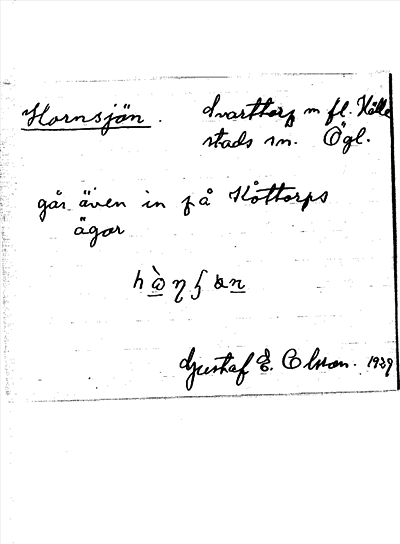 Hornsjön. Svarttorp m fl. Hälle
stads sn. Ögl.
går även in på Kåttorps
ägor
Gustaf E. Olsson. 1939